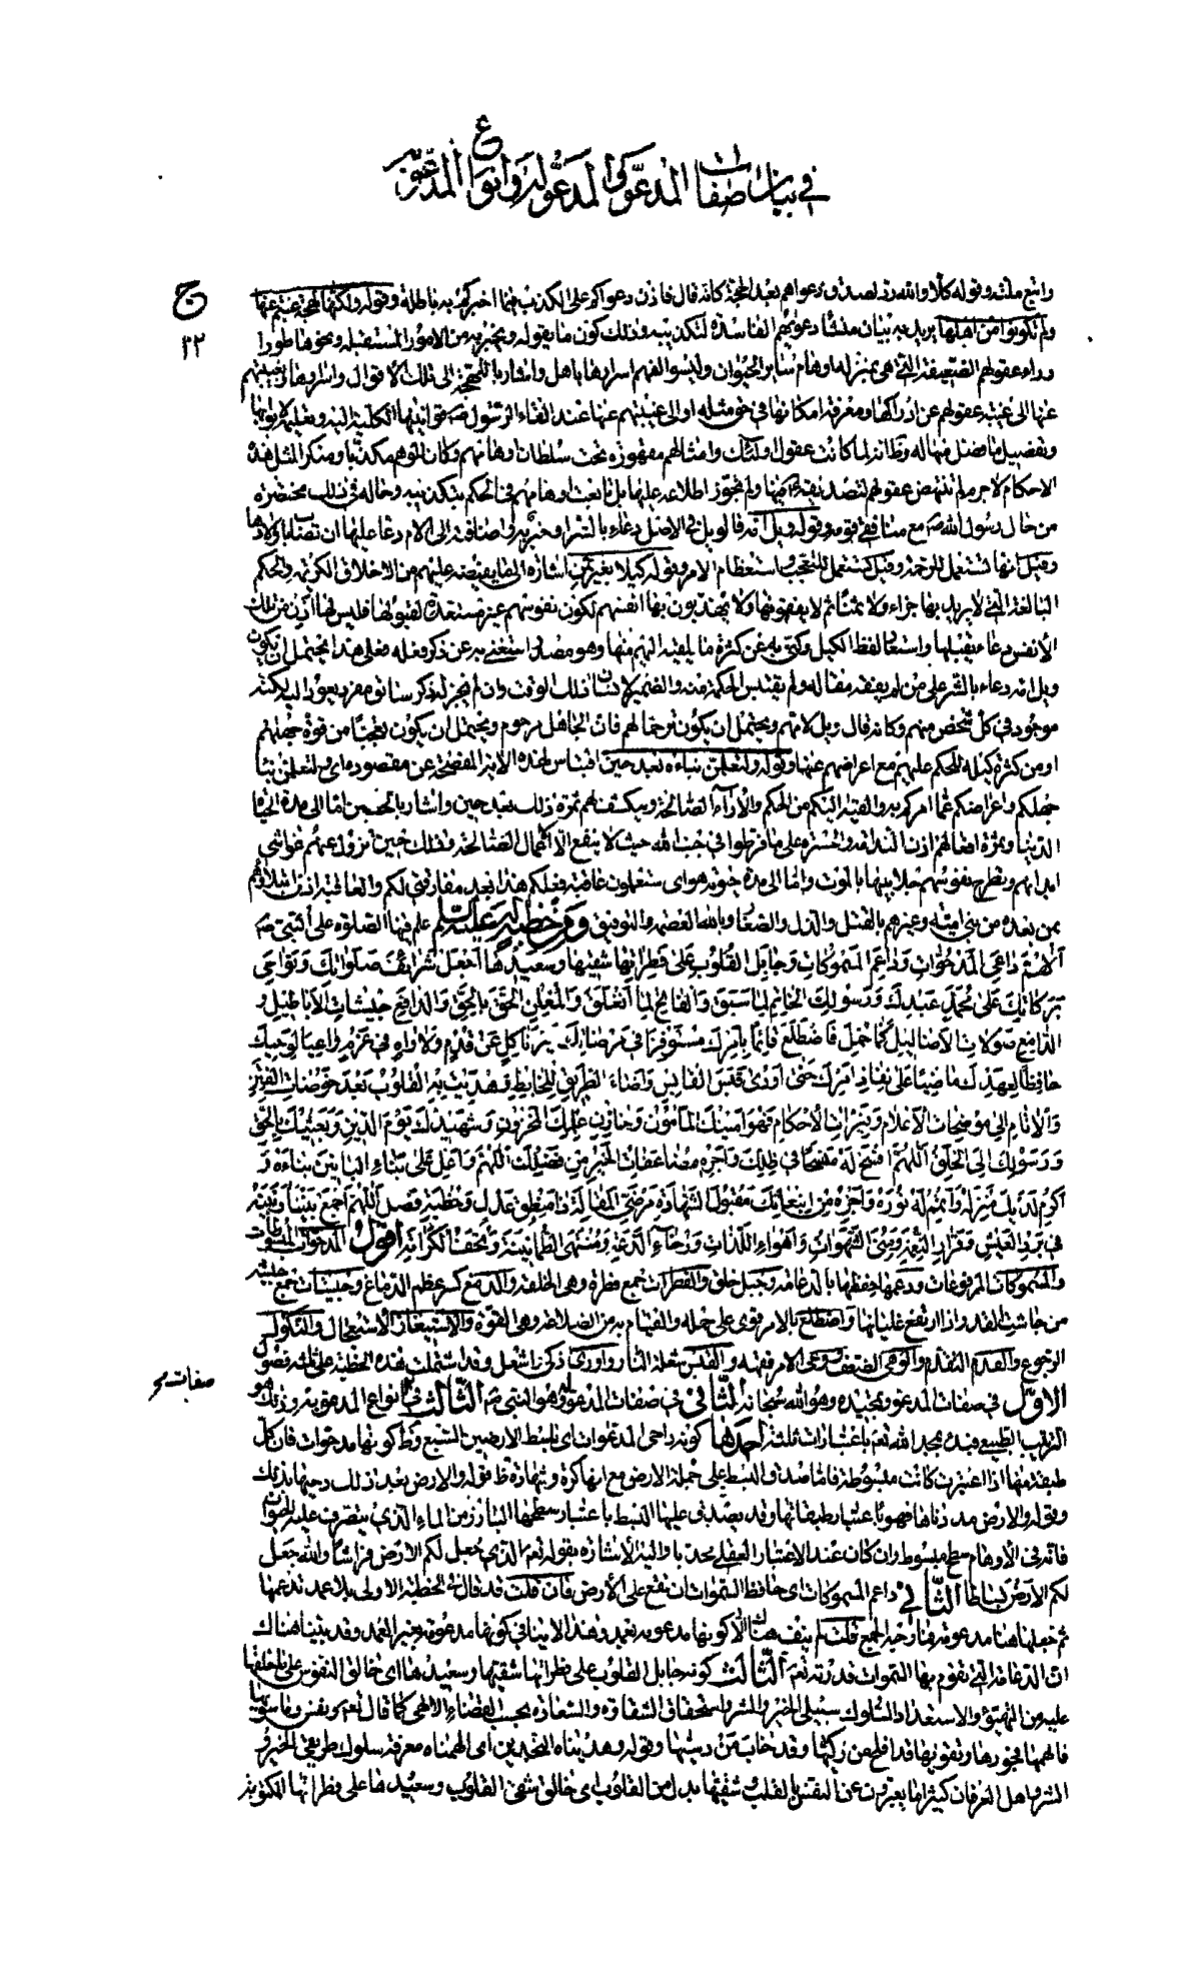 في بيان صفات المدعو والمدعو له وانواع المدعو به
ج
٢٢
واتبع ملته وقوله كلا والله رد لصدق دعواهم بعد الحجة كانه قال فاذن دعواكم على الكذب فيما اخبركم به باطلة وقوله ولكنها لهجة غبتم عنها
ولم تكونوا من اهلها يريد به بيان منشأ دعويهم الفاسدة لتكذيبه وذلك كون ما يقوله ويخبر به من الامور المستقبلة ونحوها طورا
وراء عقولهم الضعيفة التي هي بمنزلة اوهام سائر الحيوان وليسوا لفهم اسرارها باهل واشار باللهجة الى تلك الاقوال واسرارها وبغيبتهم
عنها الى غيبة عقولهم عن ادراكها ومعرفة امكانها في حق مثله او الى غيبتهم عنها عند القاء الرسول ص قوانينها الكلية اليه وتعليمه لابوابها
وتفصيل ما فصل منها له وظاهر انه لما كانت عقول اولئك وامثالهم مقهورة تحت سلطان اوهامهم وكان الوهم مكذبا ومنكرا لمثل هذه
الاحكام لاجرم لم تنهض عقولهم لتصديقه فيها ولم تجوز اطلاعه عليها بل تابعت اوهامهم في الحكم بتكذيبه وحاله في ذلك مختصرة
من حال رسول الله ص مع منافقي قومه وقوله ويل امه فالويل في الاصل دعاء بالشر او خبر به واضافته الى الام دعاء عليها ان تصاب باولادها
وقيل انها تستعمل للرحمة وقيل تستعمل للتعجب واستعظام الامر وقوله كيلا بغير ثمن اشارة الى ما يفيضه عليهم من الاخلاق الكريمة والحكم
البالغة التي لا يريد بها جزاء ولا ثمنا ثم لا يفقهونها ولا يهذبون بها انفسهم لكون نفوسهم غير مستعدة لقبولها فليس لها اذن من تلك
الأنفس وعاء يقبلها واستعار لفظ الكيل وكنى به عن كثرة ما يلقيه اليهم منها وهو مصدر استغنى به عن ذكر فعله فعلى هذا يحتمل ان يكون
ويل امه دعاء بالشر على من لم يفقه مقاله ولم يقتبس الحكمة منه والضمير لانسان ذلك الوقت وان لم يجر له ذكر سابق مفرد يعود اليه لكنه
موجود في كل شخص منهم وكانه قال ويل لامهم ويحتمل ان يكون ترحما لهم فان الجاهل مرحوم ويحتمل ان يكون تعجبا من قوة جهلهم
او من كثرة كيله للحكم عليهم مع اعراضهم عنها وقوله ولتعلمن نباءه بعد حين اقتباس لهذه الاية المفصحة عن مقصوده اي ولتعلمن نبأ
جهلكم واعراضكم عما امركم به والقيه اليكم من الحكم والآراء الصالحة وينكشف لهم ثمرة ذلك بعد حين واشار بالحين اما الى مدة الحياة
الدنيا وثمرة افعالهم اذن الندامة والحسرة على ما فرطوا في جنب الله حيث لا ينفع الا الاعمال الصالحة وذلك حين تزول عنهم غواشي
ابدانهم وتطرح نفوسهم جلابيبها بالموت واما الى مدة خوته هو اي ستعلمون عاقبة فعلكم هذا بعد مفارقتي لكم والعاقبة اذن ابتلاؤهم
بمن بعده من بني امية وغيرهم بالقتل والذل والصغار وبالله العصمة والتوفيق ومن خطبة له عليه السلام علم فيها الصلوة على النبي ص
أللهم داحي المدحوات وداعم المسموكات وجابل القلوب على فطراتها شقيها وسعيدها اجعل شرائف صلواتك ونوامي
بركاتك على محمد عبدك ورسولك الخاتم لما سبق والفاتح لما انغلق والمعلن الحق بالحق والدافع جيشات الاباطيل و
الدامغ صولات الاضاليل كما حمل فاضطلع قائما بامرك مستوفزا في مرضاتك غير ناكل عن قدم ولا واه في عزم واعيا لوحيك
حافظا لعهدك ماضيا على نفاذ امرك حتى اورى قبس القابس واضاء الطريق للخابط وهديت به القلوب بعد خوضات الفتن
والآثام الى موضحات الاعلام ونيرات الاحكام فهو امينك المأمون وخازن علمك المخزون وشهيدك يوم الدين وبعيثك بالحق
ورسولك الى الخلق أللهم افسح له مفسحا في ظلك واجزه مضاعفات الخير من فضلك اللهم واعل على بناء البانين بناءه و
اكرم لديك منزله واتمم له نوره واجزه من ابتعاثك مقبول الشهادة مرضي المقالة ذا منطق عدل وخطبة فصل اللهم اجمع بيننا وبينه
في برد العيش وقرار النعمة ومنى الشهوات واهواء اللذات ورخاء الدعة ومنتهى الطمأنينة وتحف الكرامة اقول المدحوات المبسوطات
والمسموكات المرفوعات ودعمها حفظها بالدعامة وجبل خلق والفطرات جمع فطرة وهي الخلقة والدمغ كسر عظم الدماغ وجيشات جمع جيشة
من جاشت القدر اذا ارتفع غليانها واضطلع بالامر قوى على حمله والقيام به من الضلاعة وهي القوة والاستيفاز الاستعجال والنكول
الرجوع والقدم التقدم والوهى الضعف ووعى الامر فهمه والقبس شعلة النار واورى ذكى واشعل وقد اشتملت هذه الخطبة على ثلثة فصول
صفات مج
الاول في صفات المدعو وتمجيده وهو الله سبحانه الثاني في صفات المدعو له وهو النبي ص الثالث في انواع المدعو به وذلك هو
الترتيب الطبيعي فبدء بمجد الله تعم باعتبارات ثلثة احدها كونه داحي المدحوات اي باسط الارضين السبع وظ كونها مدحوات فان كل
طبقة منها اذا اعتبرت كانت مبسوطة فاما صدق البسط على جملة الارض مع انها كرة وشهادة ظ قوله والارض بعد ذلك دحيها بذلك
وقوله والارض مددناها فهو باعتبار طبقاتها وقد يصدق عليها البسط باعتبار سطحها البارز من الماء الذي يتصرف عليه الحيوان
فانه في الأوهام سطح مبسوط وان كان عند الاعتبار العقلي محدبا واليه الاشارة بقوله تعم الذي جعل لكم الارض فراشا والله جعل
لكم الارض بساطا الثاني داعم المسموكات اي حافظ السموات ان تقع على الأرض فان قلت قد قال في الخطبة الاولى بلا عمد تدعمها
ثم جعلها هنا مدعومة فما وجه الجمع قلت لم ينف هناك الا كونها مدعومة بعمد وهذا لا ينافي كونها مدعومة بغير العمد وقد بينا هناك
ان الدعامة التي تقوم بها السموات قدرته تعم الثالث كونه جابل القلوب على فطراتها شقيها وسعيدها اي خالق النفوس على ما خلقها
عليه من التهيؤ والاستعداد لسلوك سبيلي الخير والشر واستحقاق الشقاوة والسعادة بحسب القضاء الالهي كما قال تعم ونفس وما سويها
فالهمها فجورها وتقويها قد افلح من زكيها وقد خاب من دسيها وقوله وهديناه النجدين اي الهمناه معرفة سلوك طريقي الخير و
الشر واهل العرفان كثيرا ما يعبرون عن النفس بالقلب وشقيها بدل من القلوب اي خالق شقي القلوب وسعيدها على فطراتها المكتوبة